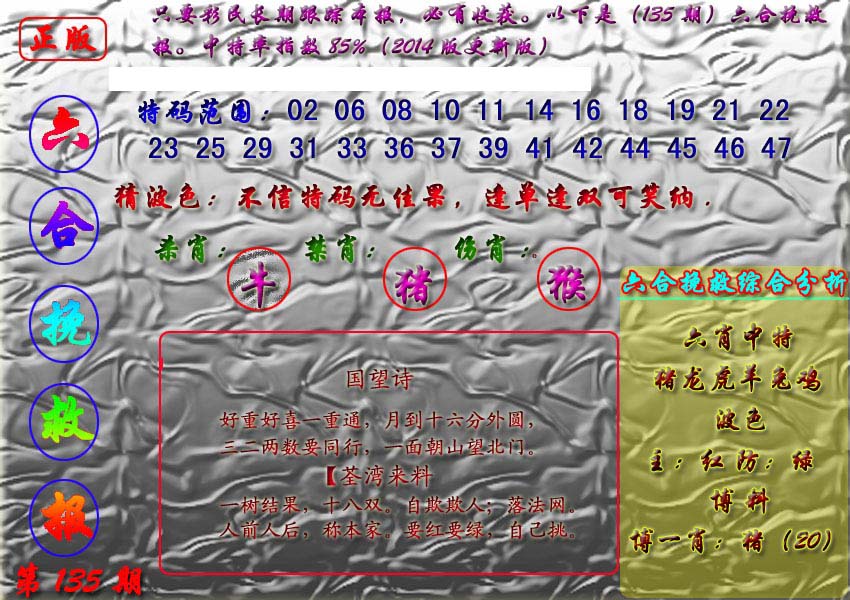 正版
只要彩民长期跟踪本报，必有收获。以下是（135期）六合挽救
报。中特率指数85%（2014版更新版）
六
合
挽
救
报
第135期
特码范围：02 06 08 10 11 14 16 18 19 21 22
23 25 29 31 33 36 37 39 41 42 44 45 46 47
猜波色：不信特码无佳果，逢单逢双可笑纳．
杀肖：牛 禁肖：猪 伤肖：。猴
国望诗
好重好喜一重通，月到十六分外圆，
三二两数要同行，一面朝山望北门。
【荃湾来料
一树结果，十八双。自欺欺人；落法网。
人前人后，称本家。要红要绿，自己挑。
六合挽救综合分析
六肖中特
猪龙虎羊兔鸡
波色
主：红防：绿
博料
博一肖：猪（20）